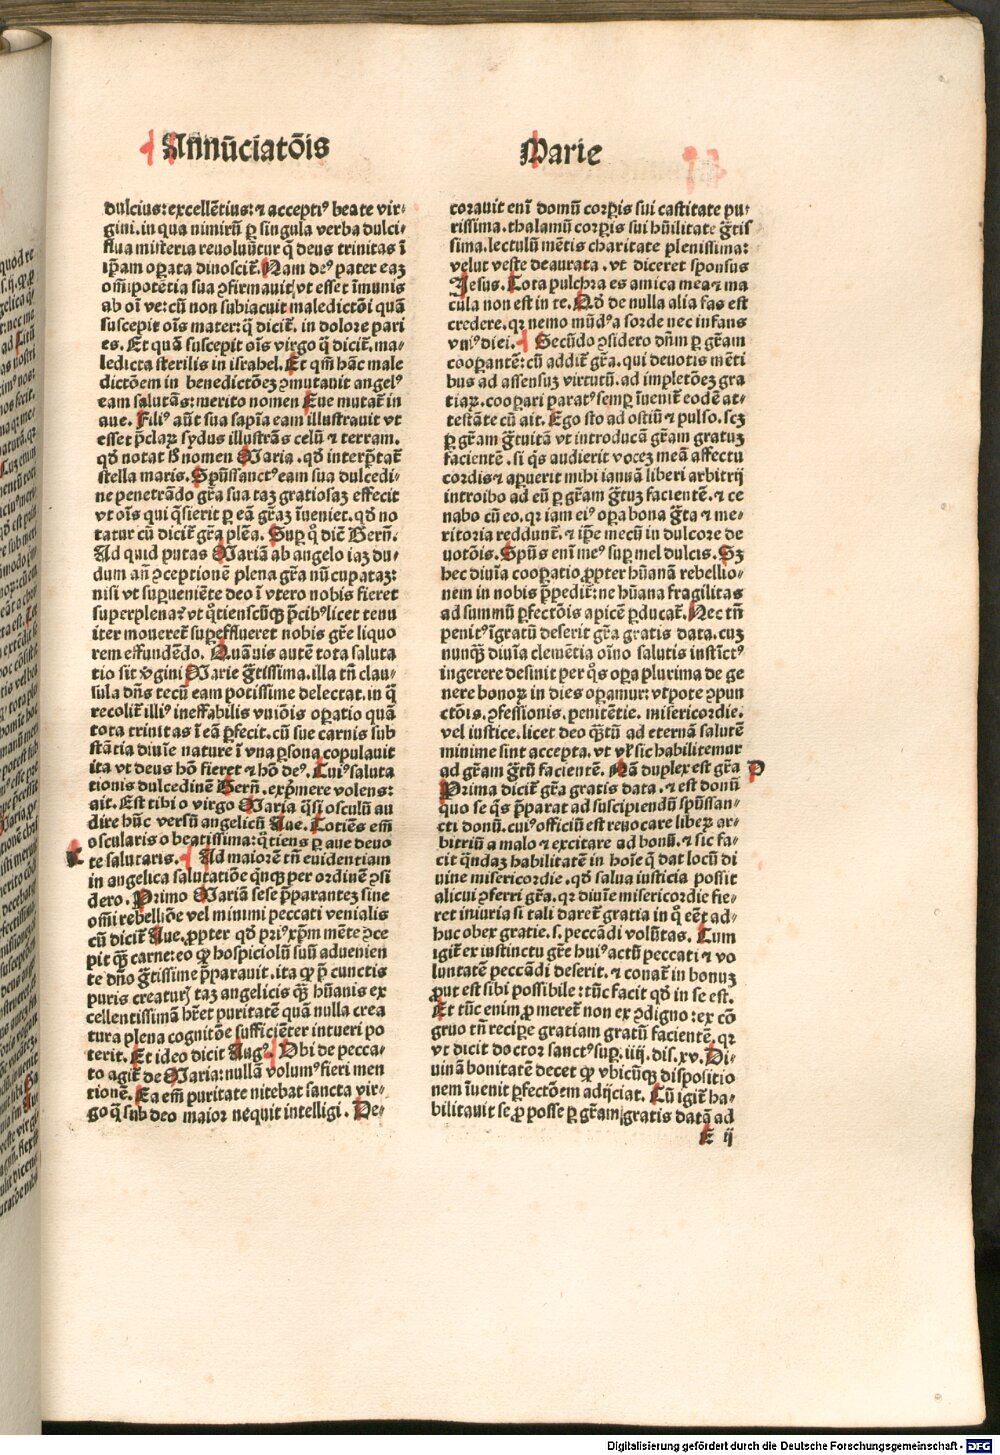 Annūciatōis Marie
dulcius: excellētius: ⁊ acceptiꝰ beate vir-
gini. in qua nimirū ꝑ singula verba dulci-
flua misteria reuoluūtur ꝙ deus trinitas ī
ip̄am oꝑata dinoscit̄. Nam deꝰ pater eaꝫ
om̄ipotētia sua ꝯfirmauit, vt esset īmunis
ab oī ve: cū non subiacuit maledictōi quā
suscepit oīs mater: q̄ dicit̄. in dolore pari
es. Et quā suscepit oīs virgo q̄ dicit̄. ma-
ledicta sterilis in israhel. Et qm̄ hāc male
dictōem in benedictōeꝫ ꝯmutauit angelꝰ
eam salutās: merito nomen Eue mutat̄ in
aue. Filiꝰ aūt sua sapīa eam illustrauit vt
esset p̄claꝝ sydus illustrās celū ⁊ terram.
qd̄ notat h̄ nomen Maria. qd̄ interp̄tat̄
stella maris. Sp̄ussanctꝰ eam sua dulcedi-
ne penetrādo gr̄a sua taꝫ gratiosaꝫ effecit
vt oīs qui q̄sierit ꝑ eā gr̄aꝫ īueniet. qd̄ no
tatur cū dicit̄ gr̄a plēa. Suꝑ q̊ dic̄ Bern̄.
Ad quid putas Mariā ab angelo iaꝫ du-
dum an̄ ꝯceptionē plena gr̄a nūcupataꝫ:
nisi vt suꝑueniēte deo ī vtero nobis fieret
superplenar̄ vt q̊tienscūqꝫ p̄cibꝰ licet tenu
iter moueret̄ suꝑefflueret nobis gr̄e liquo
rem effundēdo. Quāuis autē tota saluta
tio sit v̄gini Marie ḡtissima. illa tn̄ clau-
sula dn̄s tecū eam potissime delectat. in q̄
recolit̄ illiꝰ ineffabilis vniōis oꝑatio quā
tota trinitas ī eā ꝑfecit. cū sue carnis sub
stātia diuīe nature ī vna ꝑsona copulauit
ita vt deus hō fieret ⁊ hō deꝰ. Cuiꝰ saluta
tionis dulcedinē Bern̄. exp̄mere volens:
ait. Est tibi o virgo Maria q̄si osculū au
dire hūc versū angelicū Aue. Totiēs em̄
oscularis o beatissima: q̊tiens ꝑ aue deuo
te salutaris. Ad maiorē tn̄ euidentiam
in angelica salutatiōe qn̄qꝫ per ordinē ꝯsi
dero. Primo Mariā sese p̄parantez sine
om̄i rebelliōe vel minimi peccati venialis
cū dicit̄ Aue. ꝓpter qd̄ priꝰ xp̄m mēte ꝯce
pit qꝫ carne: eo ꝙ hospiciolū suū aduenien
te dn̄o ḡtissime p̄parauit. ita ꝙ p̄ cunctis
puris creaturꝭ taꝫ angelicis qꝫ hūanis ex
cellentissimā hr̄et puritatē quā nulla crea
tura plena cognitōe sufficiēter intueri po
terit. Et ideo dicit Augꝰ. Ubi de pecca-
to agit̄ de Maria: nullā volumꝰ fieri men
tionē. Ea em̄ puritate nitebat sancta vir-
go q̄ sub deo maior nequit intelligi. De-
K
corauit enī domū corꝑis sui castitate pu-
rissima. thalamū corꝑis sui hūilitate ḡtis
sima. lectulū mētis charitate plenissima:
velut veste deaurata. vt diceret sponsus
Jesus. Tota pulchra es amica mea ⁊ ma
cula non est in te. Qd̄ de nulla alia fas est
credere. qꝛ nemo mūdꝰ a sorde nec infans
vniꝰ diei. Secūdo ꝯsidero dn̄m ꝑ gr̄am
cooꝑantē: cū addit̄ gr̄a. qui deuotis mēti
bus ad assensuꝫ virtutū. ad impletōeꝫ gra
tiaꝝ. coopari paratꝰ semꝑ īuenit̄ eodē at-
testāte cū ait. Ego sto ad ostiū ⁊ pulso. scꝫ
ꝑ gr̄am ḡtuitā vt introducā gr̄am gratuꝫ
facientē. si q̄s audierit voceꝫ meā affectu
cordis ⁊ aꝑuerit mihi ianuā liberi arbitrij
introibo ad eū ꝑ gr̄am ḡtuꝫ facientē. ⁊ ce
nabo cū eo. qꝛ iam eiꝰ oꝑa bona ḡta ⁊ me-
ritoria reddunt̄. ⁊ ip̄e mecū in dulcore de
uotōis. Sp̄us enī meꝰ suꝑ mel dulcis. Sꝫ
hec diuīa cooꝑatio ꝓpter hūanā rebellio-
nem in nobis p̄pedit̄: ne hūana fragilitas
ad summū ꝑfectōis apicē ꝑducat̄. Nec tn̄
penitꝰ īgratū deserit gr̄a gratis data. cuꝫ
nunqꝫ diuīa clemētia oīno salutis instīctꝰ
ingerere desinit per q̊s oꝑa plurima de ge
nere bonoꝝ in dies oꝑamur: vtpote ꝯpun
ctōis. ꝯfessionis. penitētie. misericordie.
vel iustice. licet deo qꝫtū ad eternā salutē
minime sint accepta. vt vl̄ sic habilitemur
ad gr̄am ḡtū facientē. Nā duplex est gr̄a
P
Prima dicit̄ gr̄a gratis data. ⁊ est donū
quo se q̄s p̄parat ad suscipiendū sp̄ussan-
cti donū. cuiꝰ officiū est reuocare libeꝝ ar-
bitriū a malo ⁊ excitare ad bonū. ⁊ sic fa-
cit qn̄daꝫ habilitatē in hoīe q̄ dat locū di
uine misericordie. qd̄ salua iusticia possit
alicui ꝯferri gr̄a. qꝛ diuīe misericordie fie-
ret iniuria si tali daret̄ gratia in q̊ eēt ad-
huc obex gratie. s. peccādi volūtas. Cum
igit̄ ex instinctu gr̄e huiꝰ actū peccati ⁊ vo
luntatē peccādi deserit. ⁊ conat̄ in bonuꝫ
ꝓut est sibi possibile: tūc facit qd̄ in se est.
Et tūc enim ꝓmeret̄ non ex ꝯdigno: ex cō
gruo tn̄ recipe gratiam gratū facientē. qꝛ
vt dicit doctor sanctꝰ suꝑ. iiij. dis. xv. Di-
uinā bonitatē decet ꝙ vbicūqꝫ dispositio
nem īuenit ꝑfectōem adijciat. Cū igit̄ ha-
bilitauit se ꝓ posse ꝑ gr̄am gratis datā ad
E ij
Digitalisierung gefördert durch die Deutsche Forschungsgemeinschaft - DFG